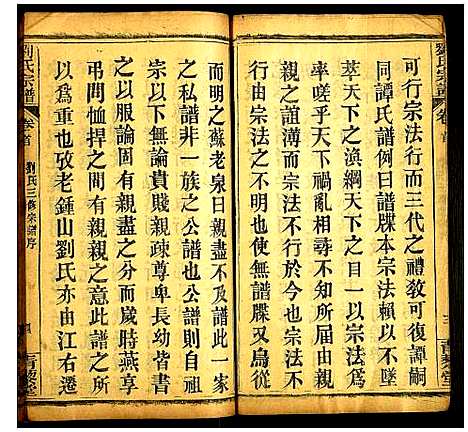 可行宗法行而三代之禮教可復譚嗣
同譚氏譜例曰譜牒本宗法賴以不墜
萃天下之渙綱天下之目一以宗法
率嗟乎天下禍亂相尋不知所由宗
親之誼薄而宗法不行於今也宗法不
行由宗法之不明也使無譜牒又烏從
而明之蘇老泉曰親盡不及譜此一家
之私譜非一族之公譜也公譜則自祖
宗以下無論貴賤親疎尊卑長幼皆宗
之以服論固有親盡而歲時燕享慶
弔問恤捍之間有親親之意此譜所
以為重也攷老鍾山劉氏亦由江右遷
劉氏宗譜
卷首
劉氏三修宗譜序
四
青藜堂